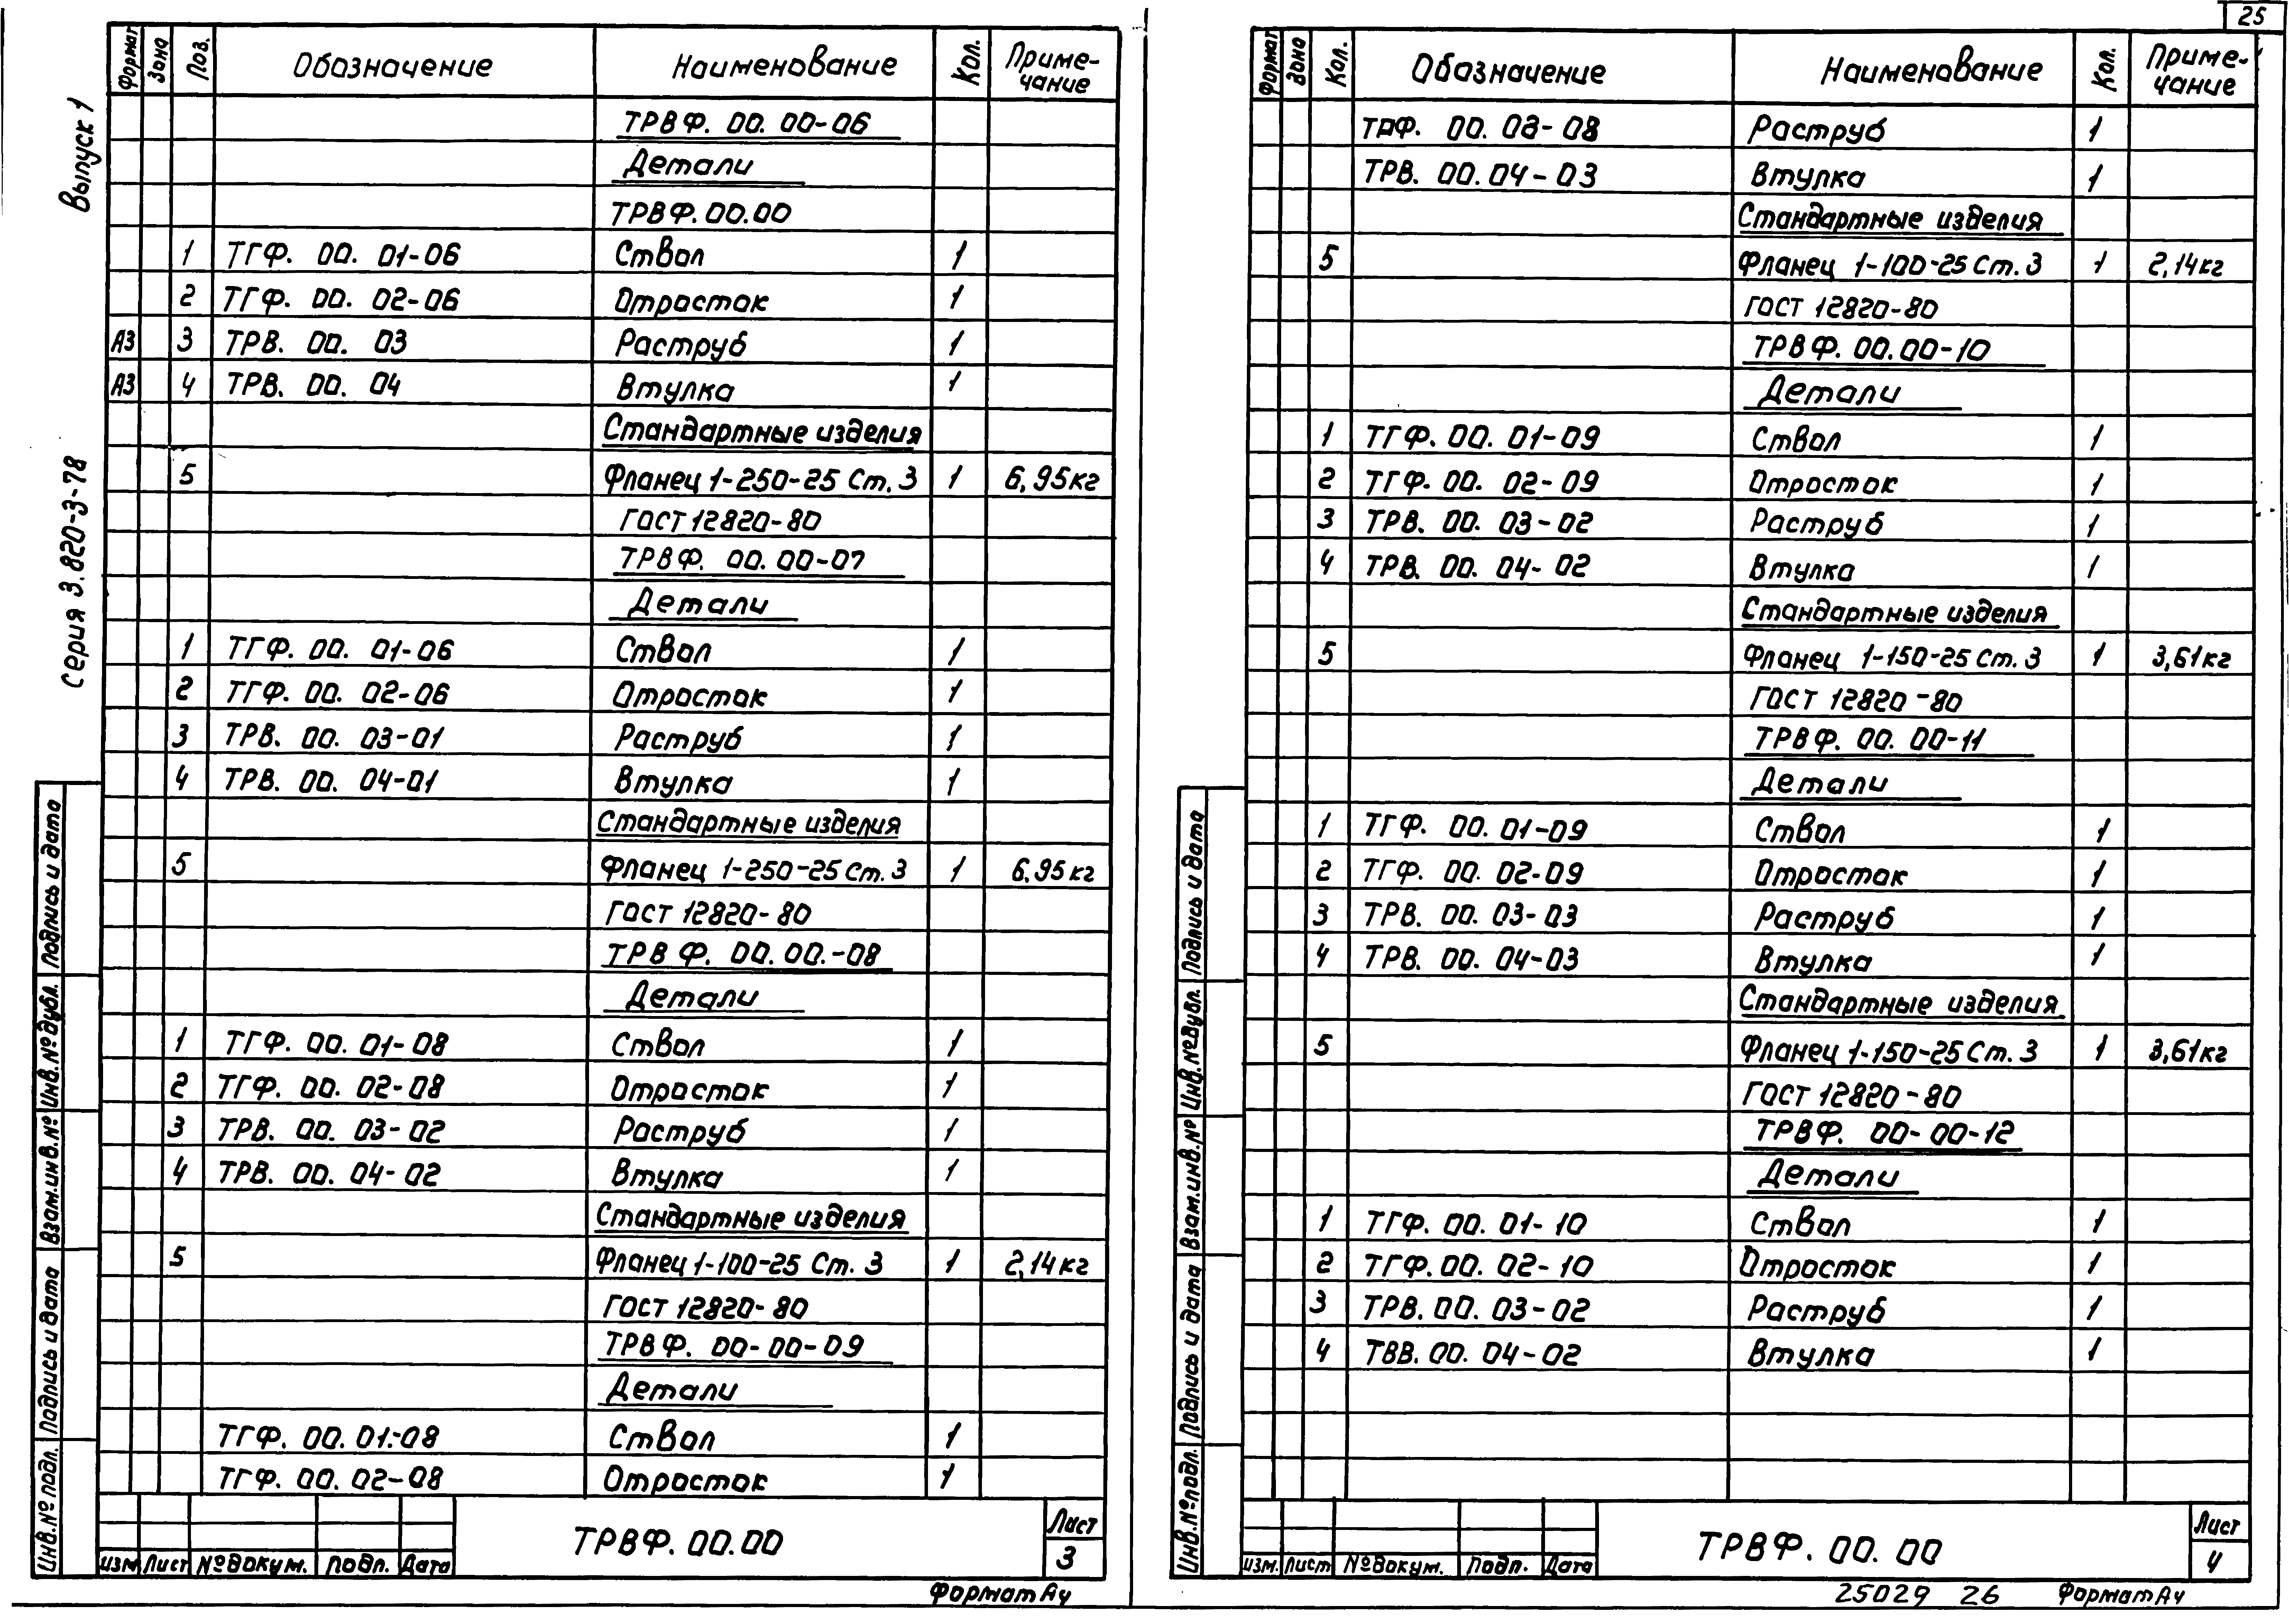 25
Выпуск 1
серия 3.820-3-78
Формат Зона Поз. Обозначение Наименование Кол. Приме-
чание
ТРВФ. 00. 00-06
Детали
ТРВФ.00.00
1 ТГФ. 00. 01-06 Ствол 1
2 ТГФ. 00. 02-06 Отросток 1
А3 3 ТРВ. 00. 03 Раструб 1
А3 4 ТРВ. 00. 04 Втулка 1
Стандартные изделия
5 Фланец 1-250-25 Ст. 3 1 6,95кг
ГОСТ 12820-80
ТРВФ. 00.00-07
Детали
1 ТГФ. 00. 01-06 Ствол 1
2 ТГФ. 00. 02-06 Отросток 1
3 ТРВ. 00. 03-01 Раструб 1
4 ТРВ. 00. 04-01 Втулка 1
Стандартные изделия
5 Фланец 1-250-25 Ст. 3 1 6,95кг
ГОСТ 12820-80
ТРВФ. 00.00.-08
Детали
1 ТГФ. 00. 01-08 Ствол 1
2 ТГФ. 00. 02-08 Отросток 1
3 ТРВ. 00. 03-02 Раструб 1
4 ТРВ. 00. 04-02 Втулка 1
Стандартные изделия
5 Фланец 1-100-25 Ст. 3 1 2,14кг
ГОСТ 12820-80
ТРВФ. 00-00-09
Детали
ТГФ. 00.01-08 Ствол 1
ТГФ. 00. 02-08 Отросток 1
Инв.№ подл. Подпись и дата Взам.инв.№ Инв.№ дубл. Подпись и дата
Изм Лист №докум. Подп. Дата
ТРВФ.00.00
Лист
3
Формат А4
Формат Зона Кол. Обозначение Наименование Кол. Приме-
чание
00. 03-08 Раструб 1
ТРВ. 00.04-03 Втулка 1
Стандартные изделия
5 Фланец 1-100-25 Ст. 3 1 2,14кг
ГОСТ 12820-80
ТРВФ. 00.00-10
Детали
1 ТГФ. 00. 01-09 Ствол 1
2 ТГФ. 00. 02-09 Отросток 1
3 ТРВ. 00. 03-02 Раструб 1
4 ТРВ. 00. 04-02 Втулка 1
Стандартные изделия
5 Фланец 1-150-25 Ст. 3 1 3,61кг
ГОСТ 12820-80
ТРВФ. 00. 00-11
Детали
1 ТГФ. 00. 01-09 Ствол 1
2 ТГФ. 00. 02-09 Отросток 1
3 ТРВ. 00. 03-03 Раструб 1
4 ТРВ. 00. 04-03 Втулка 1
Стандартные изделия
5 Фланец 1-150-25 Ст. 3 1 3,61кг
ГОСТ 12820-80
ТРВФ. 00-00-12
Детали
1 ТГФ. 00. 01-10 Ствол 1
2 ТГФ.00. 02-10 Отросток 1
3 ТРВ.00. 03-02 Раструб 1
4 ТВВ.00. 04-02 Втулка 1
Инв.№подл. Подпись и дата Взам.инв.№ Инв.№дубл. Подпись и дата
Изм. Лист №докум. Подп. Дата
ТРВФ. 00. 00
Лист
4
25029 26 Формат А4